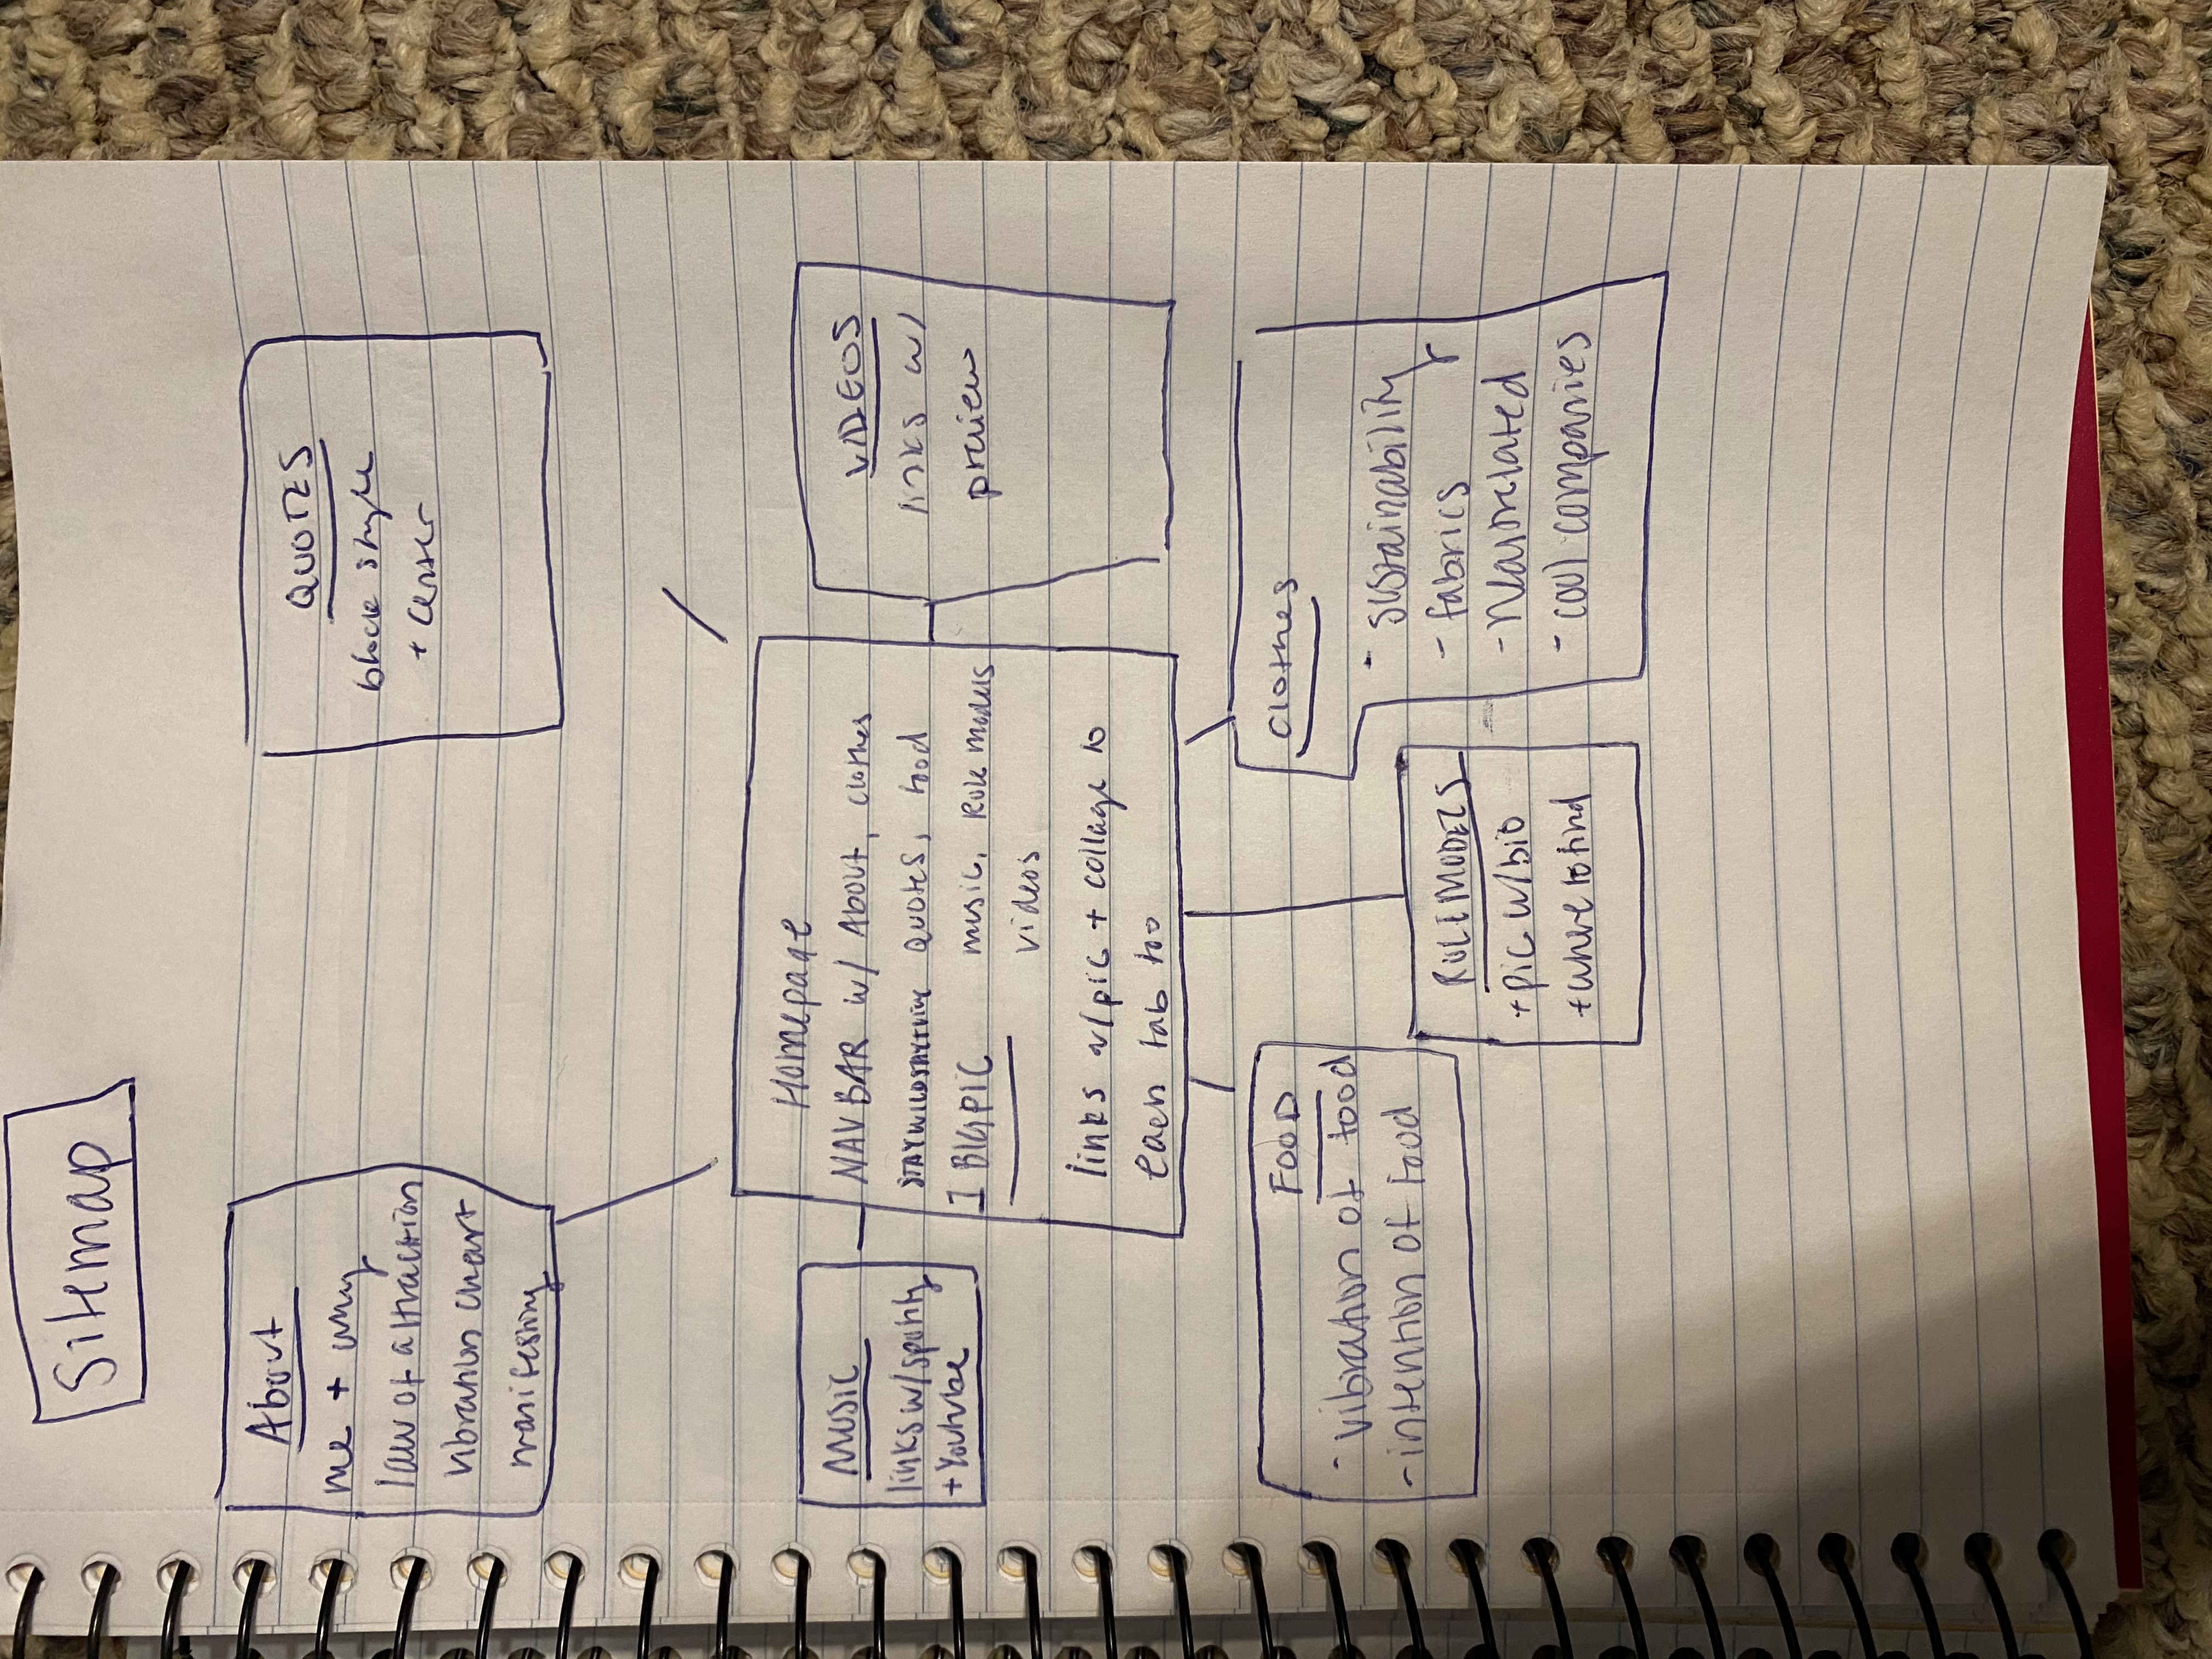 Sitemap
About
me + why
law of attraction
vibration chart
manifesting
QUOTES
block style
+ center
Music
links w/ spotify
+ Youtube
Homepage
NAV BAR w/ About, clothes
STAYWILDSTAYTHRIVE QUOTES, food
1 BIG PIC music, Role models
videos
links w/ pic + collage to
each tab too
VIDEOS
links w/
preview
FOOD
- vibration of food
- intention of food
ROLE MODELS
+ pic w/ bio
+ where to find
Clothes
- sustainability
- fabrics
- related
- cool companies